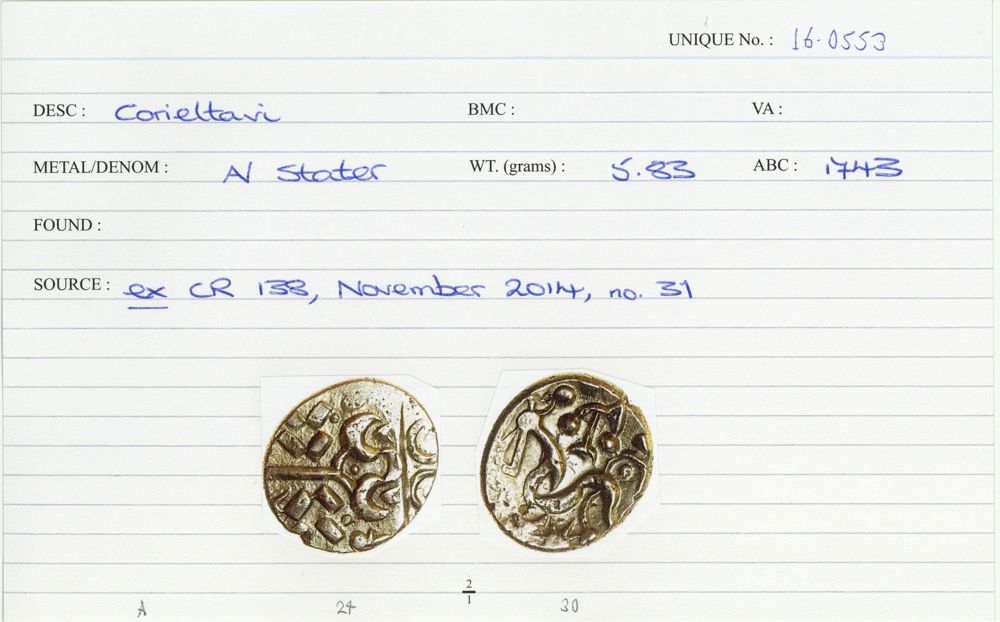 UNIQUE No. : 16-0553
DESC : Corieltavi BMC : VA :
METAL/DENOM : AV Stater WT. (grams) : 5.83 ABC : 1743
FOUND :
SOURCE : ex CR 138, November 2014, no. 31
2
1
A 24 30